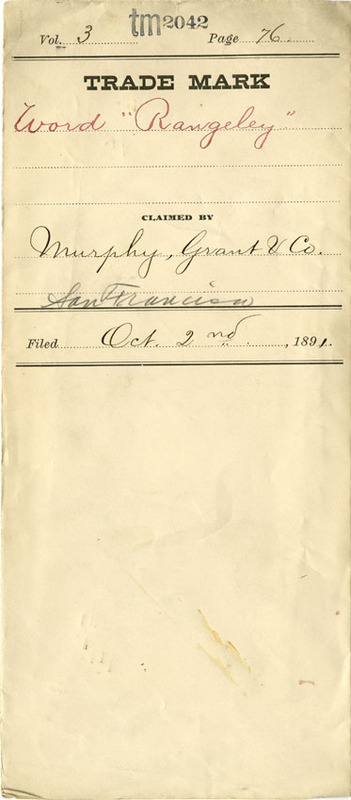 tm2042
Vol. 3 Page 76
TRADE MARK
Word "Rangeley"
CLAIMED BY
Murphy, Grant & Co.
San Francisco
Filed Oct. 2nd. , 1891.